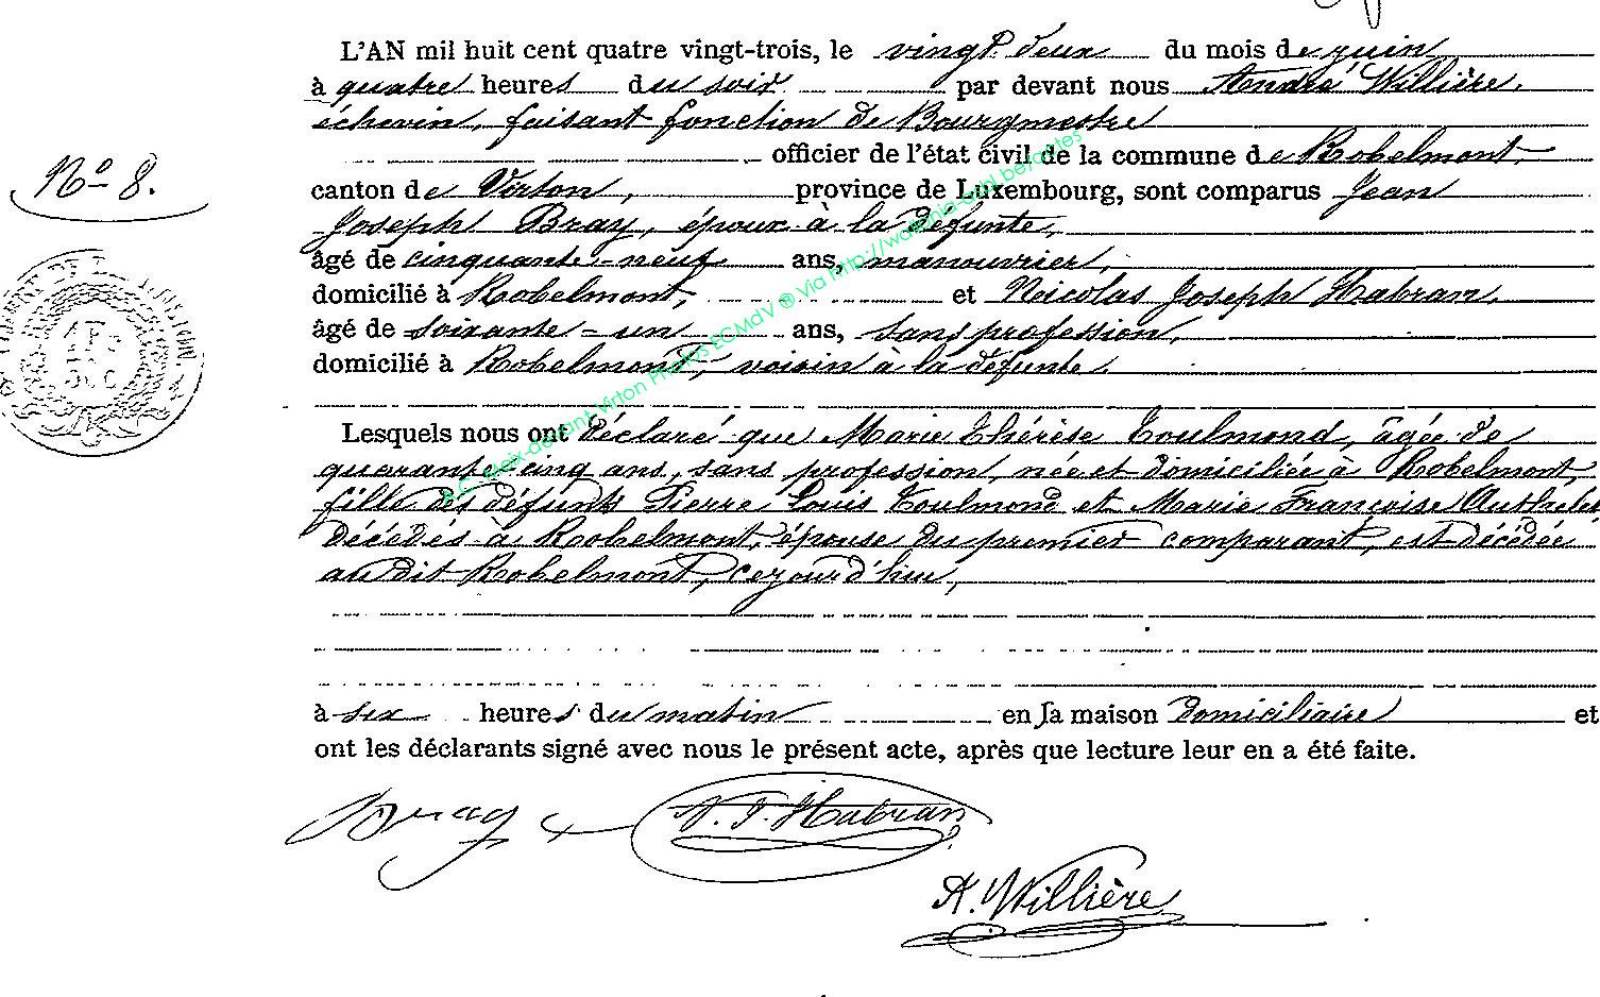 L'AN mil huit cent quatre vingt-trois, le vingt deux du mois de juin
à quatre heures du soir par devant nous André Willière,
échevin, faisant fonction de Bourgmestre
officier de l'état civil de la commune de Robelmont,
N° 8.
canton de Virton, province de Luxembourg, sont comparus Jean
Joseph Bray, époux à la défunte,
âgé de cinquante-neuf ans, manouvrier,
domicilié à Robelmont, et Nicolas Joseph Habran,
âgé de soixante-un ans, sans profession,
domicilié à Robelmont, voisin à la défunte.
Lesquels nous ont déclaré que Marie Thérèse Toulmond, âgée de
quarante cinq ans, sans profession, née et domiciliée à Robelmont,
fille des défunts Pierre Louis Toulmond et Marie Françoise
décédés à Robelmont, épouse du premier comparant, est décédée
au dit Robelmont, cejourd'hui,
à six heures du matin en sa maison domiciliaire et
ont les déclarants signé avec nous le présent acte, après que lecture leur en a été faite.
Bray N. J. Habran
A. Willière